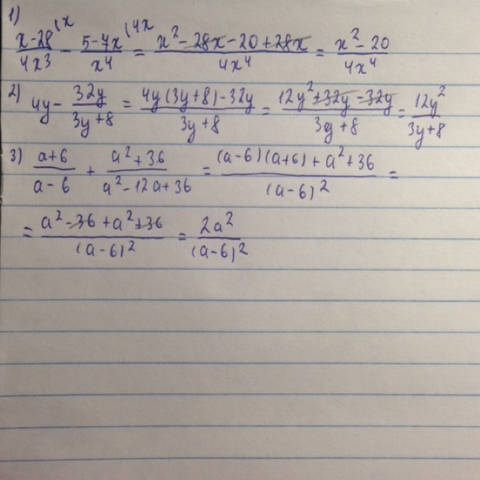 1)
(x-28)/(4x³) ⁽ˣ - (5-7x)/(x⁴) ⁽⁴ˣ = (x² - 28x - 20 + 28x)/(4x⁴) = (x² - 20)/(4x⁴)
2) 4y - (32y)/(3y+8) = (4y(3y+8) - 32y)/(3y+8) = (12y² + 32y - 32y)/(3y+8) = (12y²)/(3y+8)
3) (a+6)/(a-6) + (a²+36)/(a²-12a+36) = ((a-6)(a+6) + a² + 36)/((a-6)²) =
= (a² - 36 + a² + 36)/((a-6)²) = (2a²)/((a-6)²)